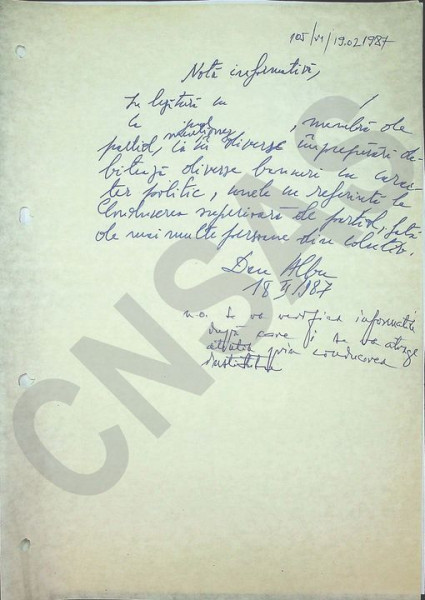 105/VI/19.02.1987
Notă informativă,
În legătură cu
la , membră de
partid, menționez
că în diverse împrejurări de-
bitează diverse bancuri cu carac-
ter politic, unele cu referință la
Conducerea superioară de partid, față
de mai multe persoane din colectiv.
Dan Albu
18 II 1987
n.o. Se va verifica informația
după care i se va atrage
atenția prin conducerea
institutului
CNSAS